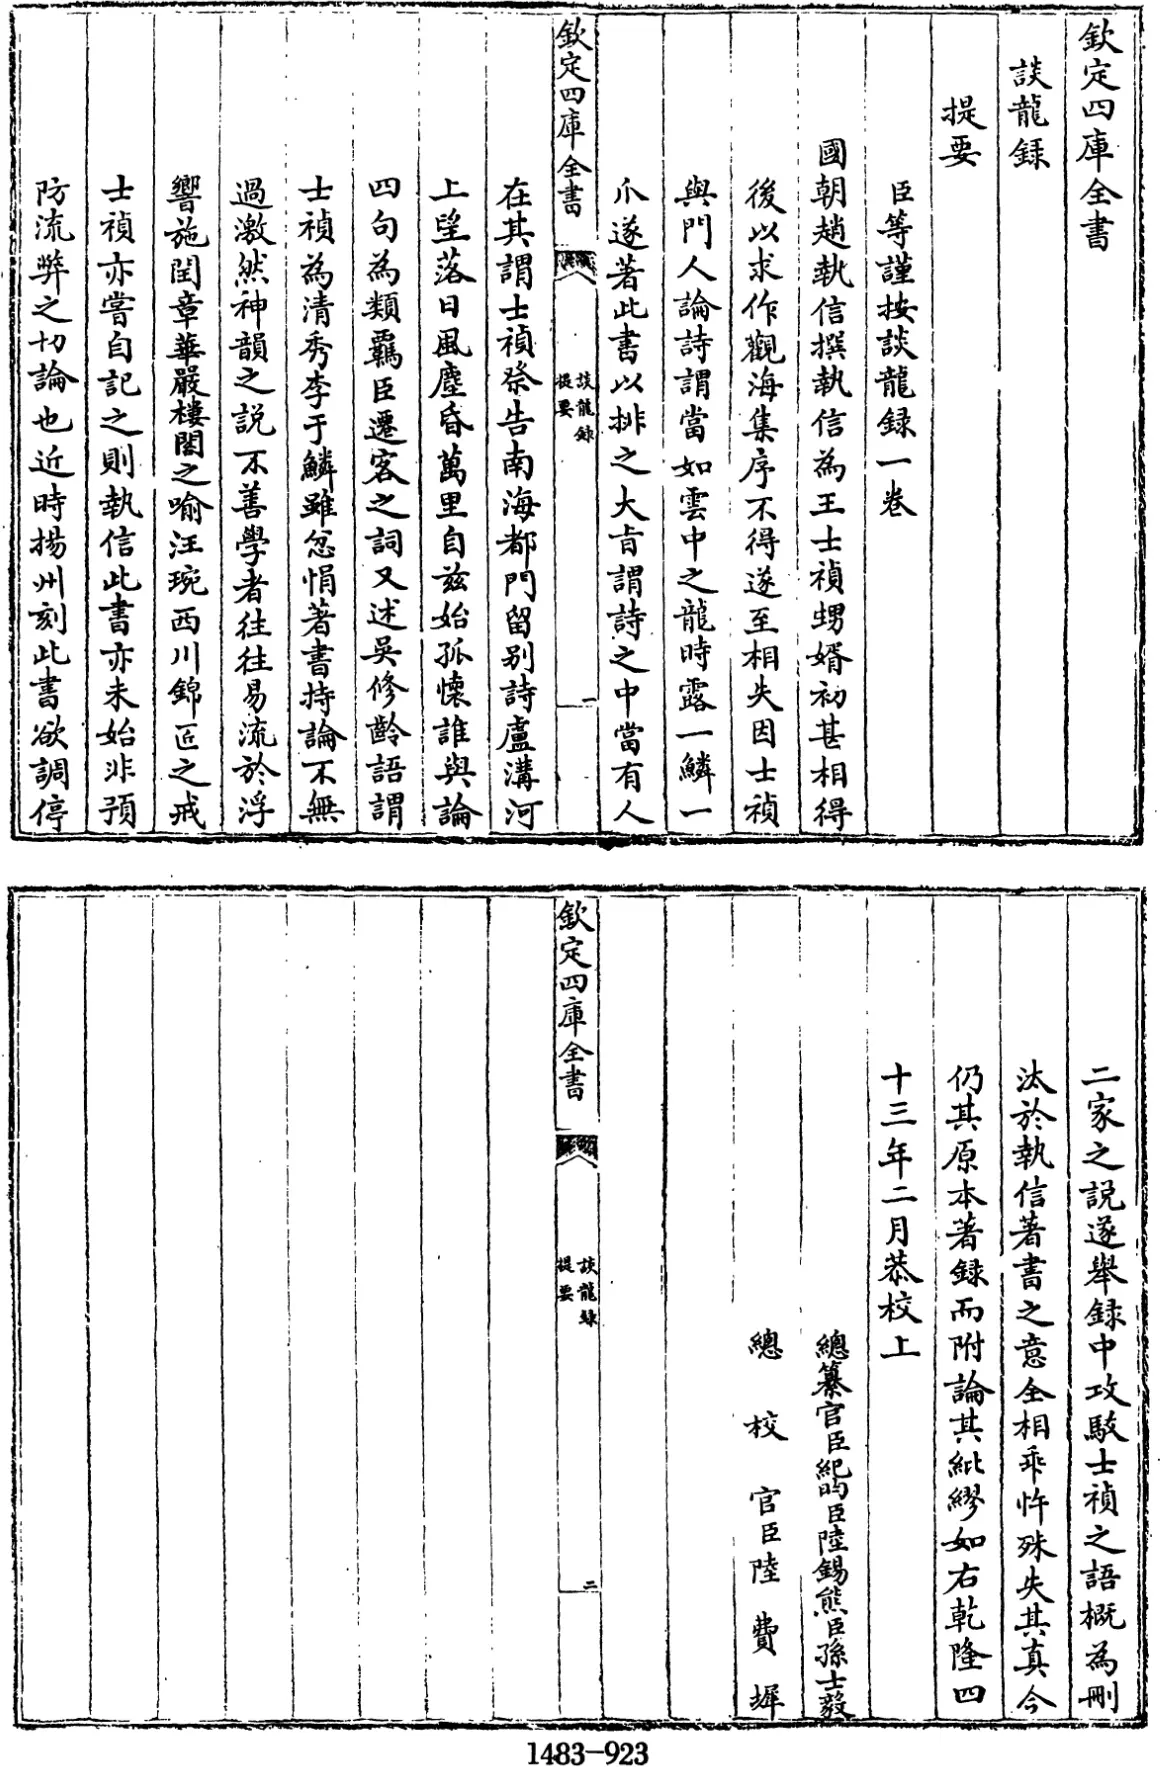 欽定四庫全書
談龍録
提要
臣等謹按談龍録一卷
國朝趙執信撰執信為王士禎甥婿初甚相得
後以求作觀海集序不得遂至相失因士禎
與門人論詩謂當如雲中之龍時露一鱗一
爪遂著此書以排之大㫖謂詩之中當有人
欽定四庫全書
談龍録
提要
一
在其謂士禎祭告南海都門留别詩盧溝河
上望落日風塵昏萬里自兹始孤懷誰與論
四句為類羈臣遷客之詞又述吳修齡語謂
士禎為清秀李于鱗雖忿悁著書持論不無
過激然神韻之説不善學者往往易流於浮
響施閏章華嚴樓閣之喻汪琬西川錦匠之戒
士禎亦嘗自記之則執信此書亦未始非預
防流弊之切論也近時揚州刻此書欲調停
二家之説遂舉録中攻駁士禎之語概為刪
汰於執信著書之意全相乖忤殊失其真今
仍其原本著録而附論其紕繆如右乾隆四
十三年二月恭校上
總纂官臣紀昀臣陸錫熊臣孫士毅
總校官臣陸費墀
欽定四庫全書
談龍録
提要
二
1483-923